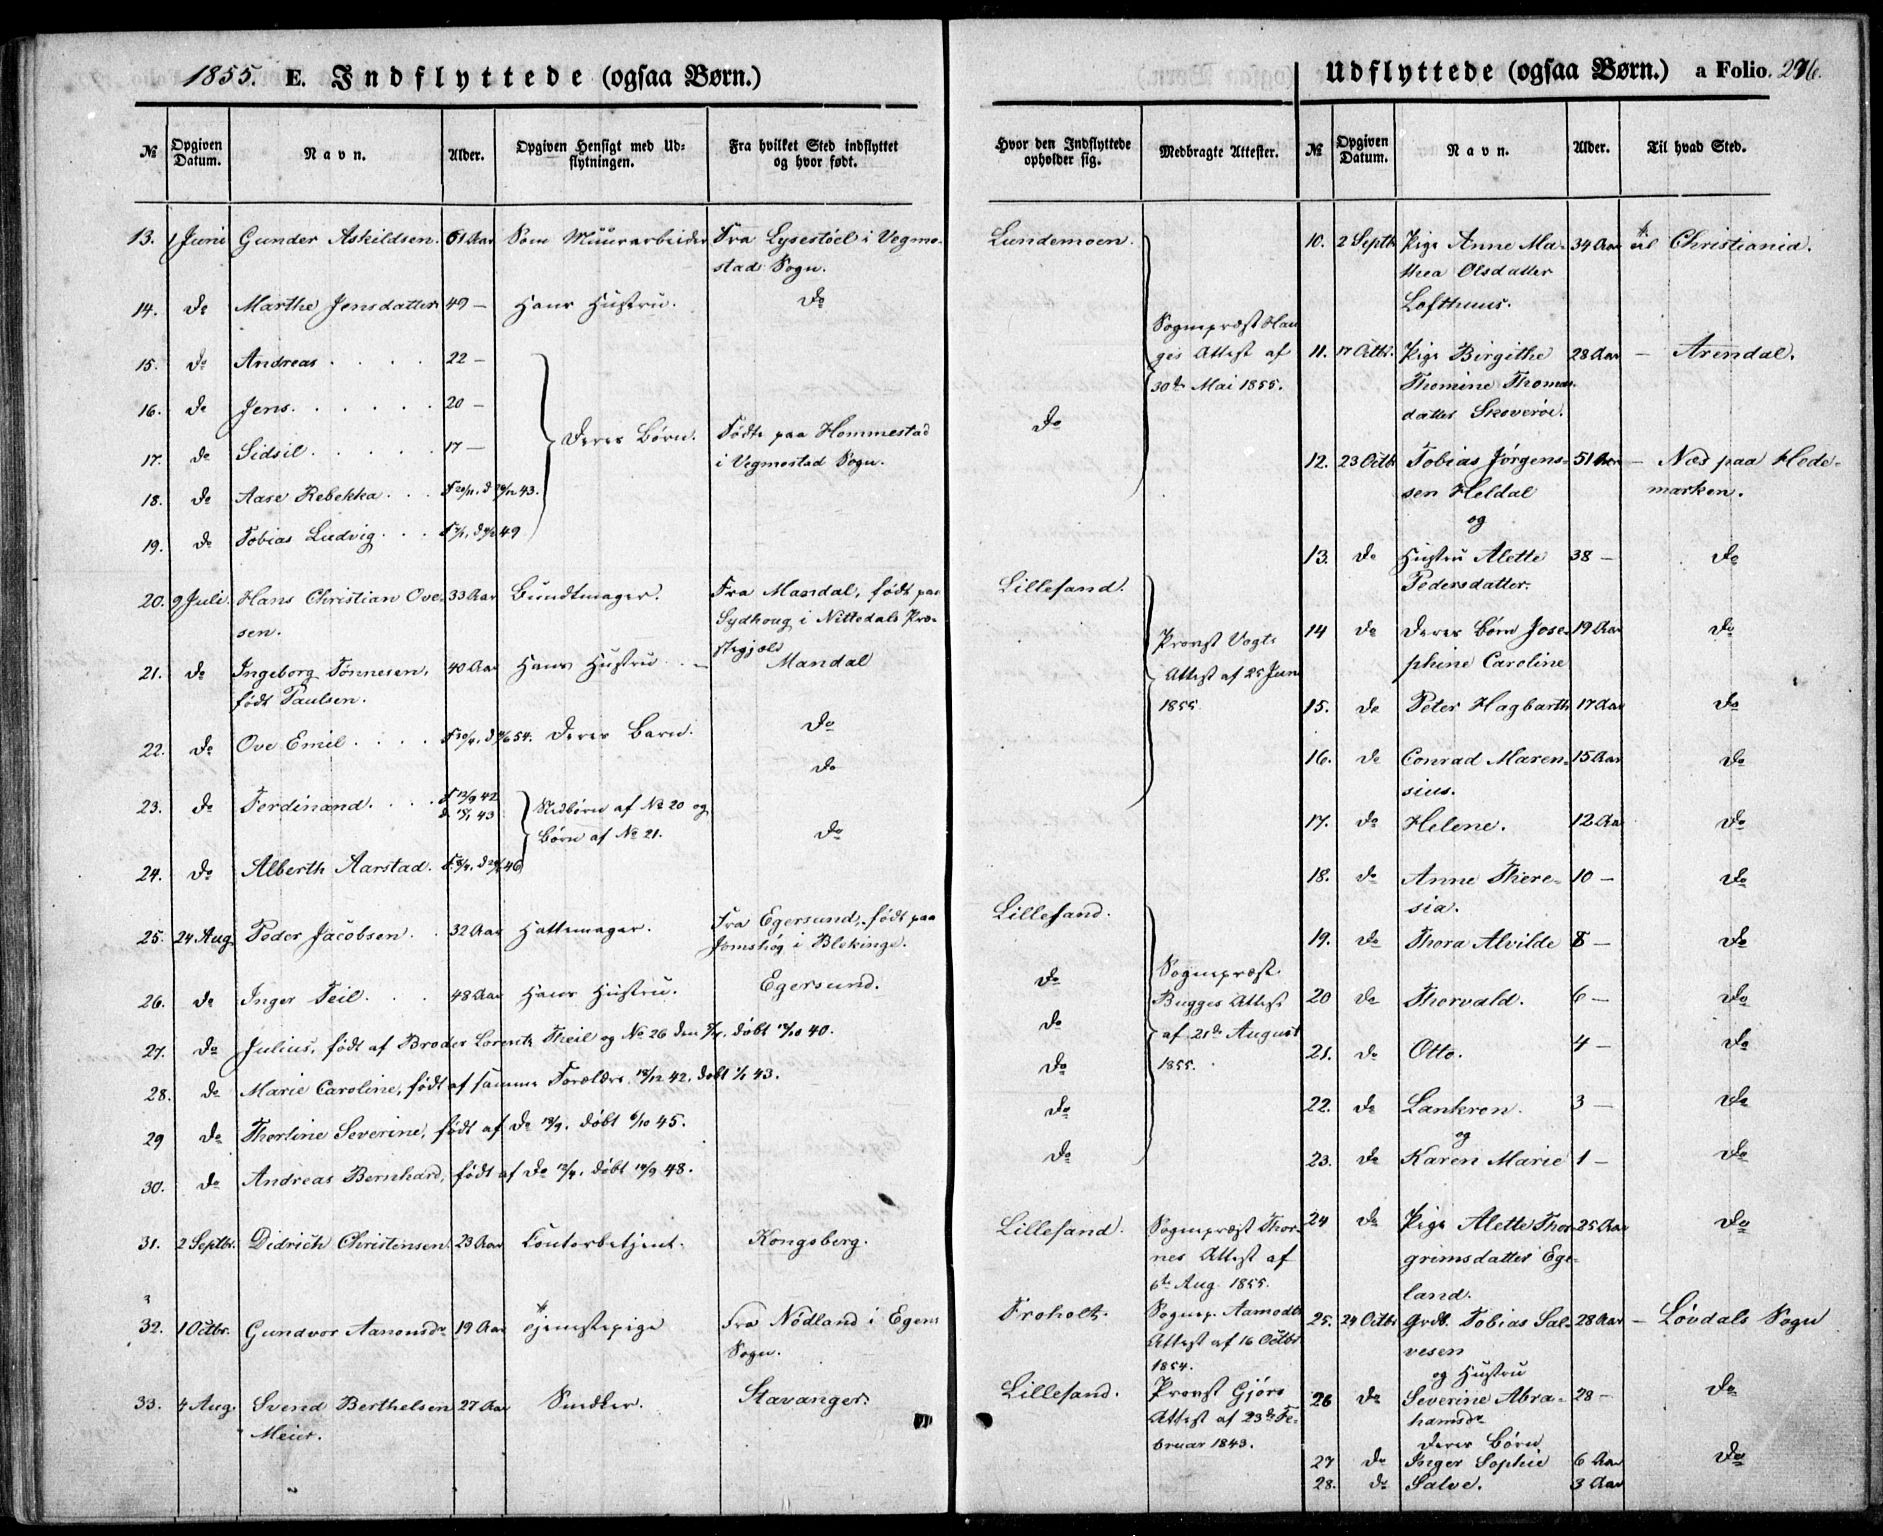 1855. E. Indflyttede (ogsaa Børn.)
Udflyttede (ogsaa Børn.) a Folio. 296.
№ Opgiven Datum. Navn. Alder. Opgiven Hensigt med Udflytningen. Fra hvilket Sted indflyttet og hvor født.
Hvor den Indflyttede opholder sig. Medbragte Attester. № Opgiven Datum. Navn. Alder. Til hvad Sted.
13. 1 Juni Gunder Askildsen. 61 Aar Som Muurarbeider Fra Lysestøel i Vegmo-
stad Sogn.
14. Do Marthe Jensdatter 49 — Hans Hustru. Do
15. Do Andreas . . . . 22 —
16. Do Jens. . . . . . 20 —
17. Do Sidsil . . . . . 17 — Deres Børn. Fødte paa Hommestad
i Vegmostad Sogn.
18. Do Aase Rebekka . . . 43.
19. Do Tobias Ludvig . . . 49
20. 9 Juli. Hans Christian Ove- 33 Aar Bundtmager. Fra Mandal, født paa
sen. Sydhoug i Nittedals Præ-
stegjeld
21. Do Ingeborg Tønnesen, 40 Aar Hans Hustru . . — Mandal
født Paulsen.
22. Do Ove Emil . . . . 54. Deres Barn. Do
23. Do Ferdinand. . . . F 12/9 42 Do
43 Stedbørn af No 20 og
Børn af No 21.
24. Do Alberth Aarstad. 46 Do
25. 24 Aug. Peder Jacobsen . 32 Aar Hattemager. Fra Egersund, født paa
Jomshög i Blekinge.
26. Do Inger Teil . . . 48 Aar Hans Hustru. Egersund.
27. Do Julius, født af Broder Lorentz Theil og No 26 den døbt 40.
28. Do Marie Caroline, født af samme Forældre 42, døbt 43.
29 Do Thorline Severine, født af Do 13/9. døbt 6/10 45.
30. Do Andreas Bernhard, født af Do døbt 48.
31. 2 Septbr. Didrich Christensen 23 Aar Contorbetjent. Kongsberg.
32. 1 Octbr. Gundvor Aanonsdr 19 Aar Tjenestepige Fra Nödland i Egens
Sogn.
33. 4 Aug. Svend Berthelsen 27 Aar Snedker. Stavanger.
Meier.
Lundemoen.
Sognepræst Hau-
ges Attest af
30te Mai 1855.
Do
Lillesand.
Provst Vogts
Attest af 25 Juni
1855
Lillesand.
Do
Sognepræst
Bugges Attest
Do
af 21de August
Do
1855.
Do
Do
Lillesand. Sognepræst Thor-
nes Attest af
6te Aug. 1855.
Froholt. Sognep. Aamodts
Attest af 16 Octbr
1854.
Lillesand. Provst Gjørs
Attest af 23de Fe-
bruar 1843.
10. 2 Septb. Pige Anne Ma- 34 Aar til Christiania.
thea Olsdatter
Lofthuus.
11. 17 Octb. Pige Birgithe 28 Aar — Arendal.
Thomine Thomas-
datter Skoverøe.
12. 23 Octb. Tobias Jørgens- 51 Aar — Næs paa Hede-
sen Heldal marken.
og
13. Do Hustru Alette 38 — Do
Pedersdatter.
14 Do Deres Børn Jose- 19 Aar Do
phine Caroline
15. Do Peter Hagbarth 17 Aar Do
16. Do Conrad Maren- 15 Aar Do
sius.
17. Do Helene. 12 Aar Do
18. Do Anne There- 10 — Do
sia.
19. Do Thora Alvilde 8 — Do
20 Do Thorvald. 6 — Do
21. Do Otto. 4 — Do
22. Do Lankron. 3 — Do
og
23. Do Karen Marie 1 — Do
24 Do Pige Alette Thor- 25 Aar Do
grimsdatter Ege-
land.
25. 24 Octbr Grdb. Tobias Sal- 28 Aar — Løvdals Sogn
vesen
og Hustru
26 Do Severine Abra- 28 — Do
hamsdr
Deres Børn
27 Do Inger Sophie 6 Aar Do
28. Do Salve. 3 Aar